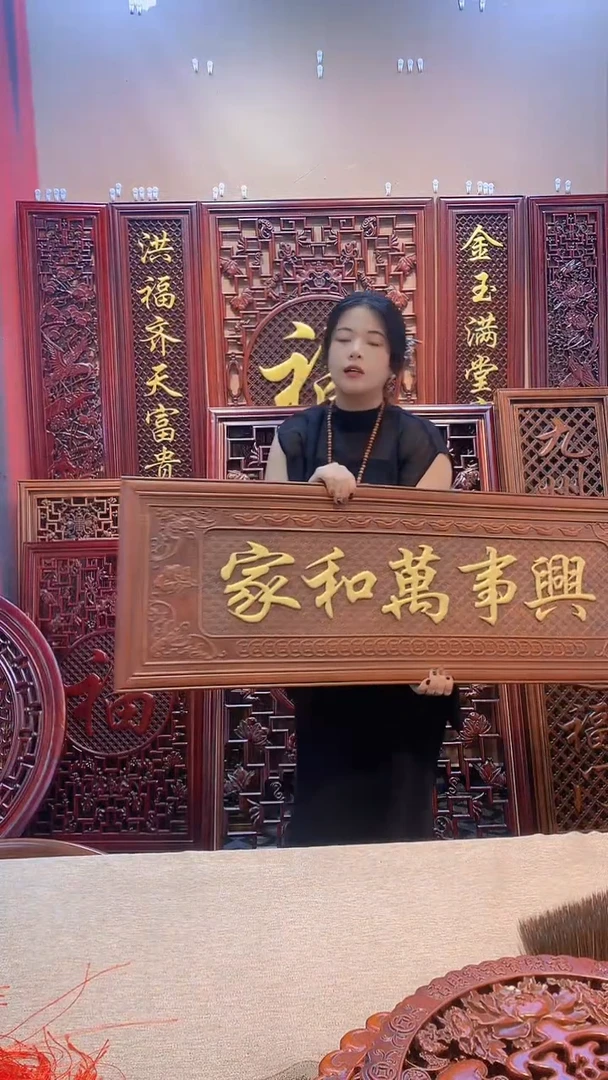 洪福齐天富贵
福
金玉满堂
家和萬事興
九州
福
福